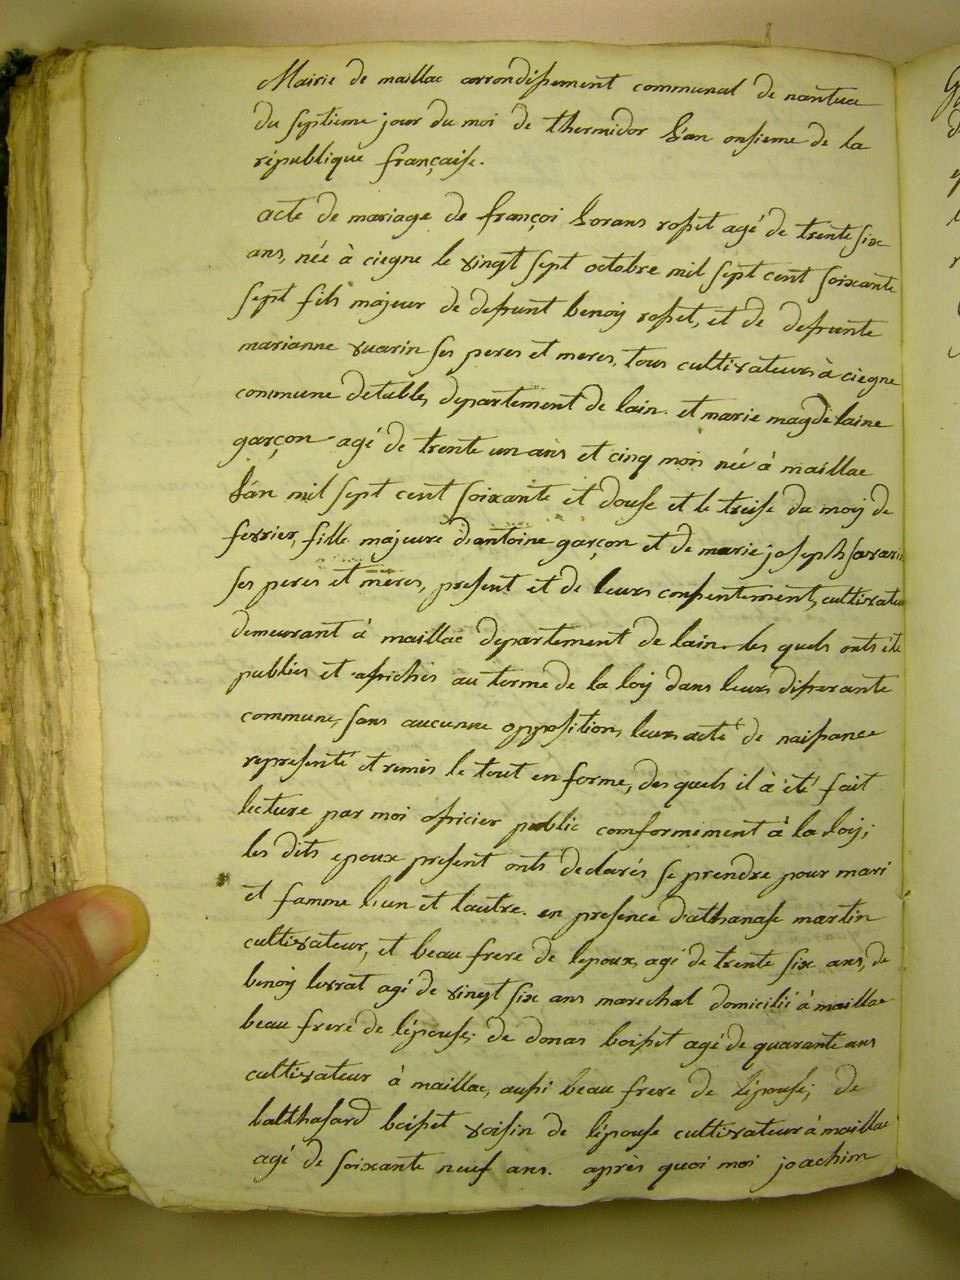 Mairie de maillac arrondissement communal de nantua
du septieme jour du moi de thermidor L'an onsieme de la
république française.
acte de mariage de françoi Lorans rosset agé de trente six
ans, née à ciegne le vingt sept octobre mil sept cent soixante
sept fils majeur de deffunt benoy rosset, et de deffunte
marianne vuarin ses peres et meres, tous cultivateurs à ciegne
commune detables, departement de lain. et marie magdelaine
garçon agé de trente un ans et cinq mois née à maillac
L'an mil sept cent soixante et douse et le treise du moy de
fevrier, fille majeure d'antoine garçon et de marie joseph savarin
ses peres et meres, present et de leurs consentement, cultivateur
demeurant à maillac departement de lain. les quels onts été
publiés et affichés au terme de la loy dans leurs differante
commune, sans aucunne opposition, leurs acte de naissance
representé et remis le tout en forme, des quels il à été fait
lecture par moi officier public comformément à la loy;
les dits epoux present onts declarés se prendre pour mari
et famme l'un et l'autre. en presence d'athanase martin
cultivateur, et beau frere de lepoux, agé de trente six ans, de
benoy levrat agé de vingt six ans marechal domicilié à maillac
beau frere de l'épouse; de donas boisset agé de quarante ans
cultivateur à maillac, aussi beau frere de l'épouse; de
balthasard boisset voisin de l'épouse cultivateur à maillac
agé de soixante neuf ans. après quoi moi joachim